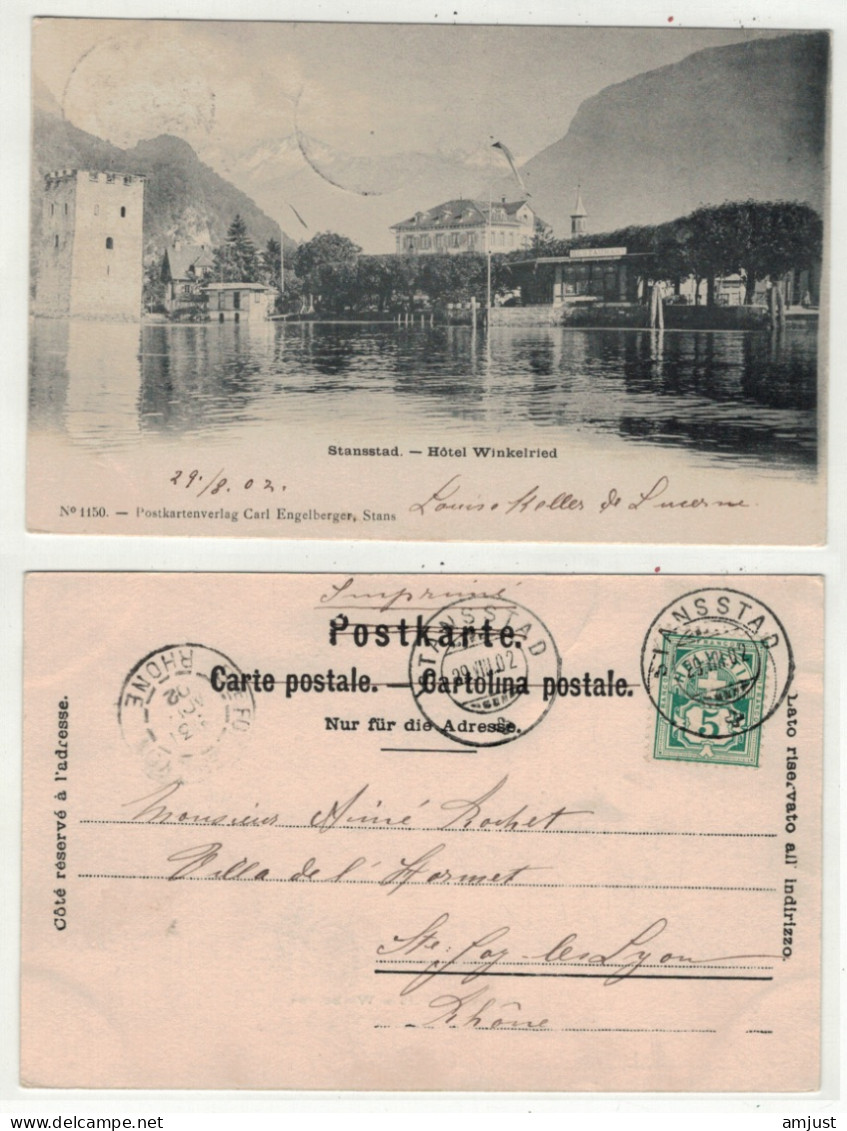 Stansstad. — Hôtel Winkelried
29./8.02.
Louise Keller de Lucerne.
Nº 1150. — Postkartenverlag Carl Engelberger, Stans
Imprimé
Postkarte.
Carte postale. — Cartolina postale.
Nur für die Adresse.
STANSSTAD
29.VIII.02
STANSSTAD
29.VIII.02
5
RHONE
Côté réservé à l'adresse.
Lato riservato all' indirizzo.
Monsieur Aimé Rochet
Villa de l'Hormet
Ste-foy-les-Lyon
Rhône
amjust